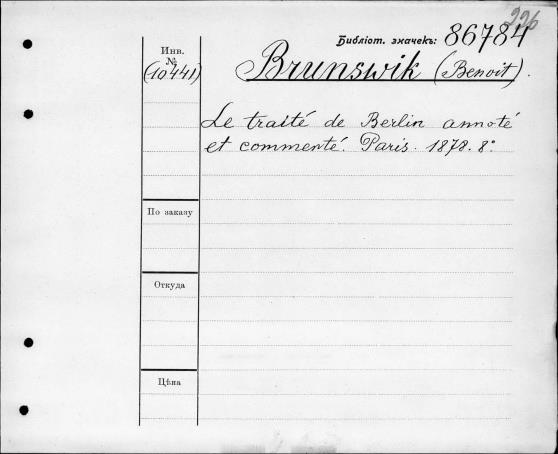 226
Библіот. значекъ: 86784
Инв.
№
(10441)
Brunswik (Benoît).
Le traité de Berlin annoté
et commenté. Paris. 1878. 8°
По заказу
Откуда
Цѣна